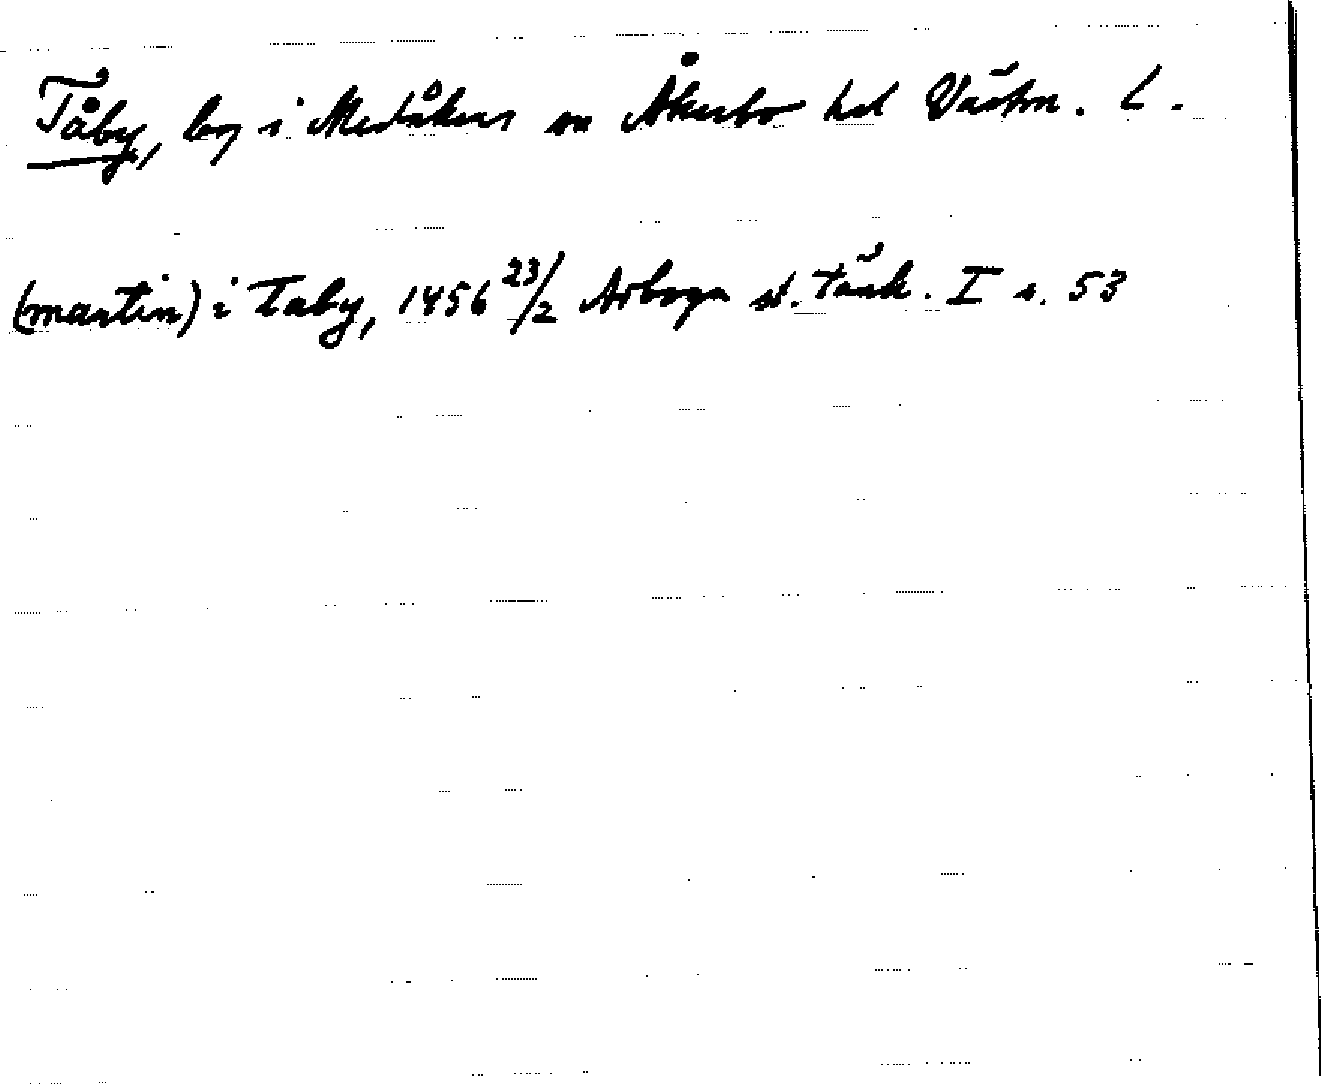 Tåby, by i Medåkers sn Åkerbo hd Västm. L.
(martin) i Taby, 1456 23/2 Arboga st. tänk. I s. 53